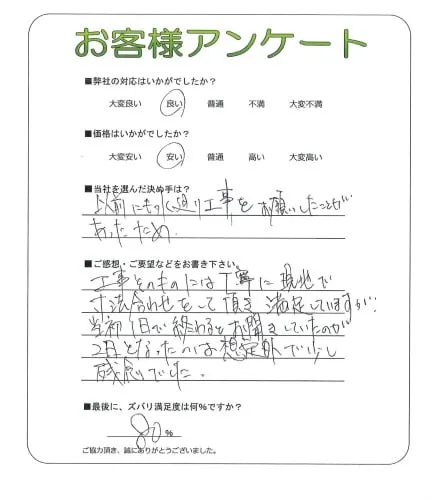 お客様アンケート
■弊社の対応はいかがでしたか?
大変良い 良い 普通 不満 大変不満
■価格はいかがでしたか?
大変安い 安い 普通 高い 大変高い
■当社を選んだ決め手は?
以前にも水廻り工事をお願いしたことが
あったため.
■ご感想・ご要望などをお書き下さい。
工事そのものには丁寧に現地で
寸法合わせをして頂き満足していますが、
当初1日で終わるとお聞きしていたのが
2日となったのは想定外で少し
残念でした。
■最後に、ズバリ満足度は何%ですか?
80%
ご協力頂き、誠にありがとうございました。